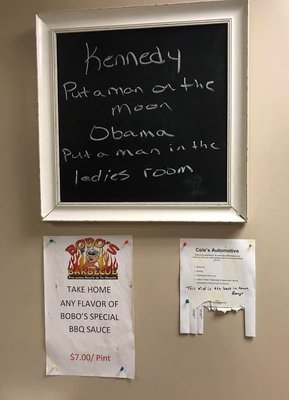 Kennedy
Put a man on the
moon
Obama
Put a man in the
ladies room
BOBO'S
BARBECUE
TAKE HOME
ANY FLAVOR OF
BOBO'S SPECIAL
BBQ SAUCE
$7.00/ Pint
Cole's Automotive
This kid is the best in town